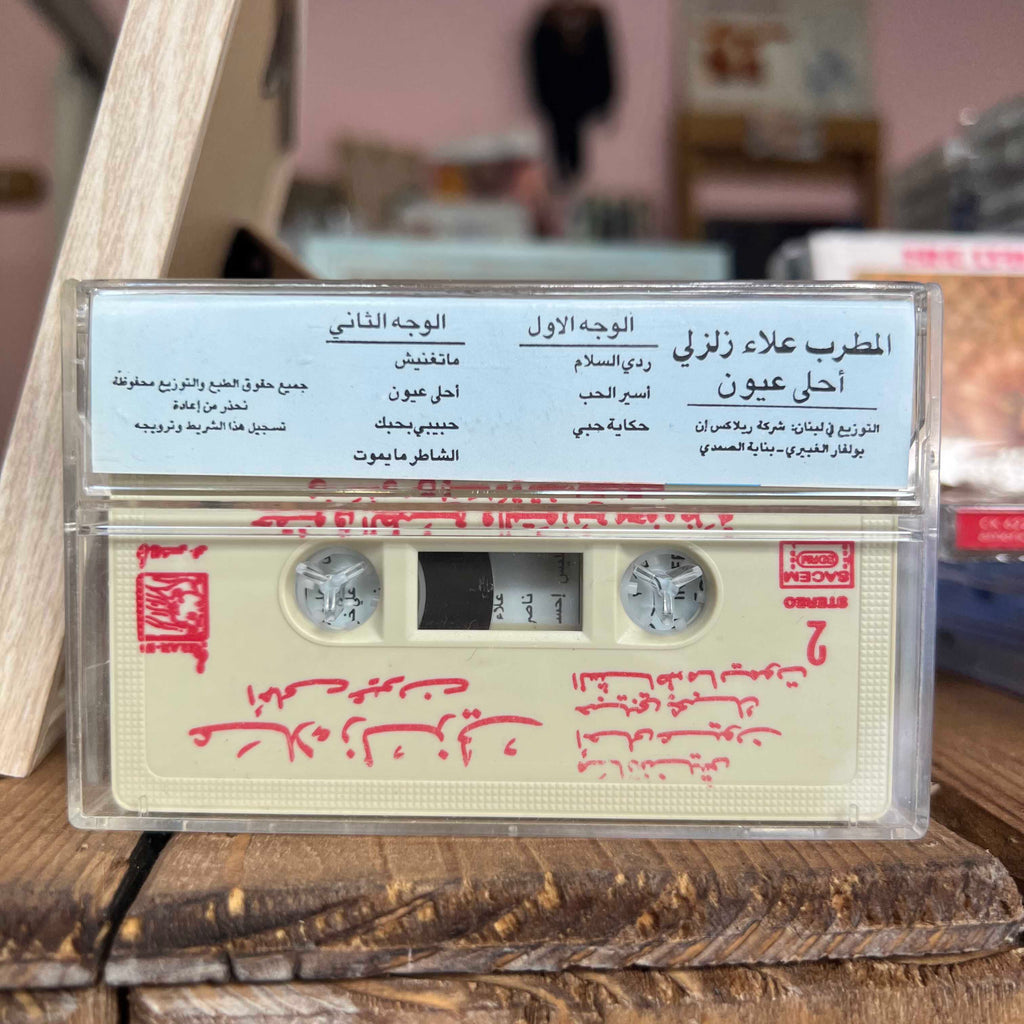 المطرب علاء زلزلي
أحلى عيون
التوزيع في لبنان: شركة ريلاكس إن
بولفار الغبيري - بناية الصمدي
الوجه الاول
ردي السلام
أسير الحب
حكاية حبي
الوجه الثاني
ماتغنيش
أحلى عيون
حبيبي بحبك
الشاطر مايموت
جميع حقوق الطبع والتوزيع محفوظة
نحذر من إعادة
تسجيل هذا الشريط وترويجه
SACEM
STEREO
2
علاء زلزلي
أحلى عيون
ماتغنيش
أحلى عيون
حبيبي بحبك
الشاطر مايموت
ناصر
علاء